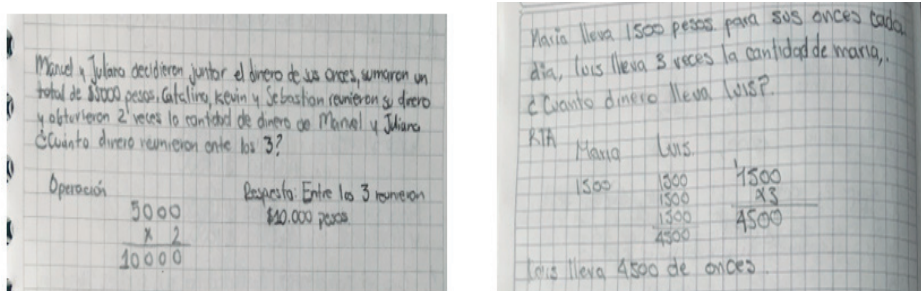 Manuel y Juliana decidieron juntar el dinero de sus onces, sumaron un
total de $5000 pesos, Catalina, Kevin y Sebastian reunieron su dinero
y obtuvieron 2 veces la cantidad de dinero de Manuel y Juliana
¿Cuánto dinero reunieron entre los 3?
Operación
5000
x 2
10000
Respuesta: Entre los 3 reunieron
$10.000 pesos
Maria lleva 1500 pesos para sus onces cada
dia, luis lleva 3 veces la cantidad de maria,
¿Cuanto dinero lleva luis?
RTA
Maria
1500
Luis
1500
1500
1500
4500
1500
x3
4500
Luis lleva 4500 de onces